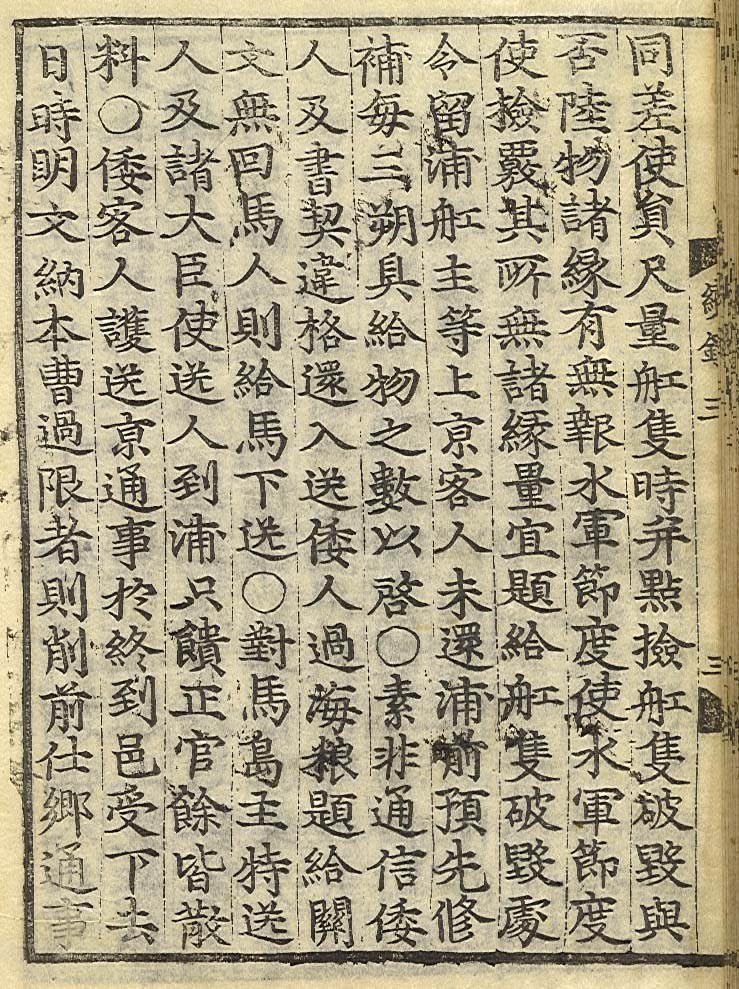 續錄 三 三
同差使貟尺量舡隻時并點撿舡隻破毀與
否陸物諸縁有無報水軍節度使水軍節度
使撿覈其所無諸縁量宜題給舡隻破毀處
令留浦舡主等上亰客人未還浦前預先修
補每三朔具給物之數以啓○素非通信倭
人及書契違格還入送倭人過海粮題給關
文無回馬人則給馬下送○對馬島主特送
人及諸大臣使送人到浦只饋正官餘皆散
料○倭客人護送亰通事於終到邑受下去
日時明文納本曹過限者則削前仕鄉通事